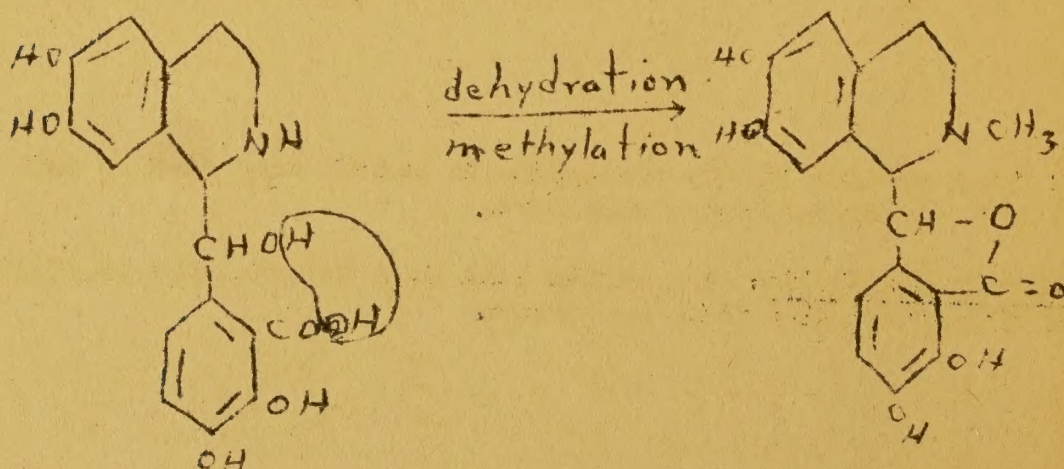 HO
HO
NH
CHOH
COOH
OH
OH
dehydration
methylation
HO
HO
N CH3
CH - O
C = O
OH
OH